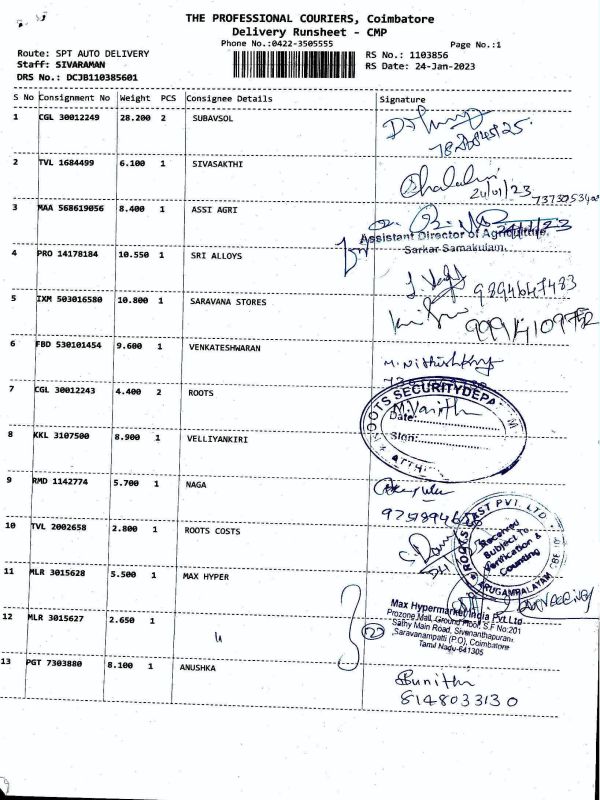 THE PROFESSIONAL COURIERS, Coimbatore
Delivery Runsheet - CMP
Phone No.:0422-3505555
Page No.:1
Route: SPT AUTO DELIVERY
RS No.: 1103856
Staff: SIVARAMAN
RS Date: 24-Jan-2023
DRS No.: DCJB110385601
S No Consignment No Weight PCS Consignee Details Signature
1 CGL 30012249 28.200 2 SUBAVSOL
2 TVL 1684499 6.100 1 SIVASAKTHI
24/01/23
3 MAA 568619056 8.400 1 ASSI AGRI
Assistant Director of Agriculture,
Sarkar Samakulam.
4 PRO 14178184 10.550 1 SRI ALLOYS
9894647483
5 IXM 503016580 10.800 1 SARAVANA STORES
6 FBD 530101454 9.600 1 VENKATESHWARAN
7 CGL 30012243 4.400 2 ROOTS
ROOTS SECURITY DEPA
Date:
Sign:
8 KKL 3107500 8.900 1 VELLIYANKIRI
9 RMD 1142774 5.700 1 NAGA
10 TVL 2002658 2.800 1 ROOTS COSTS
Received
Subject to
Verification &
Counting
11 MLR 3015628 5.500 1 MAX HYPER
Max Hypermarket India Pvt Ltd
Prozone Mall, Ground Floor, S.F No:201
Sathy Main Road, Sivananthapuram,
Saravanampatti (P.O), Coimbatore
Tamil Nadu-641305
12 MLR 3015627 2.650 1 "
13 PGT 7303880 8.100 1 ANUSHKA
Sunitha
8148033130